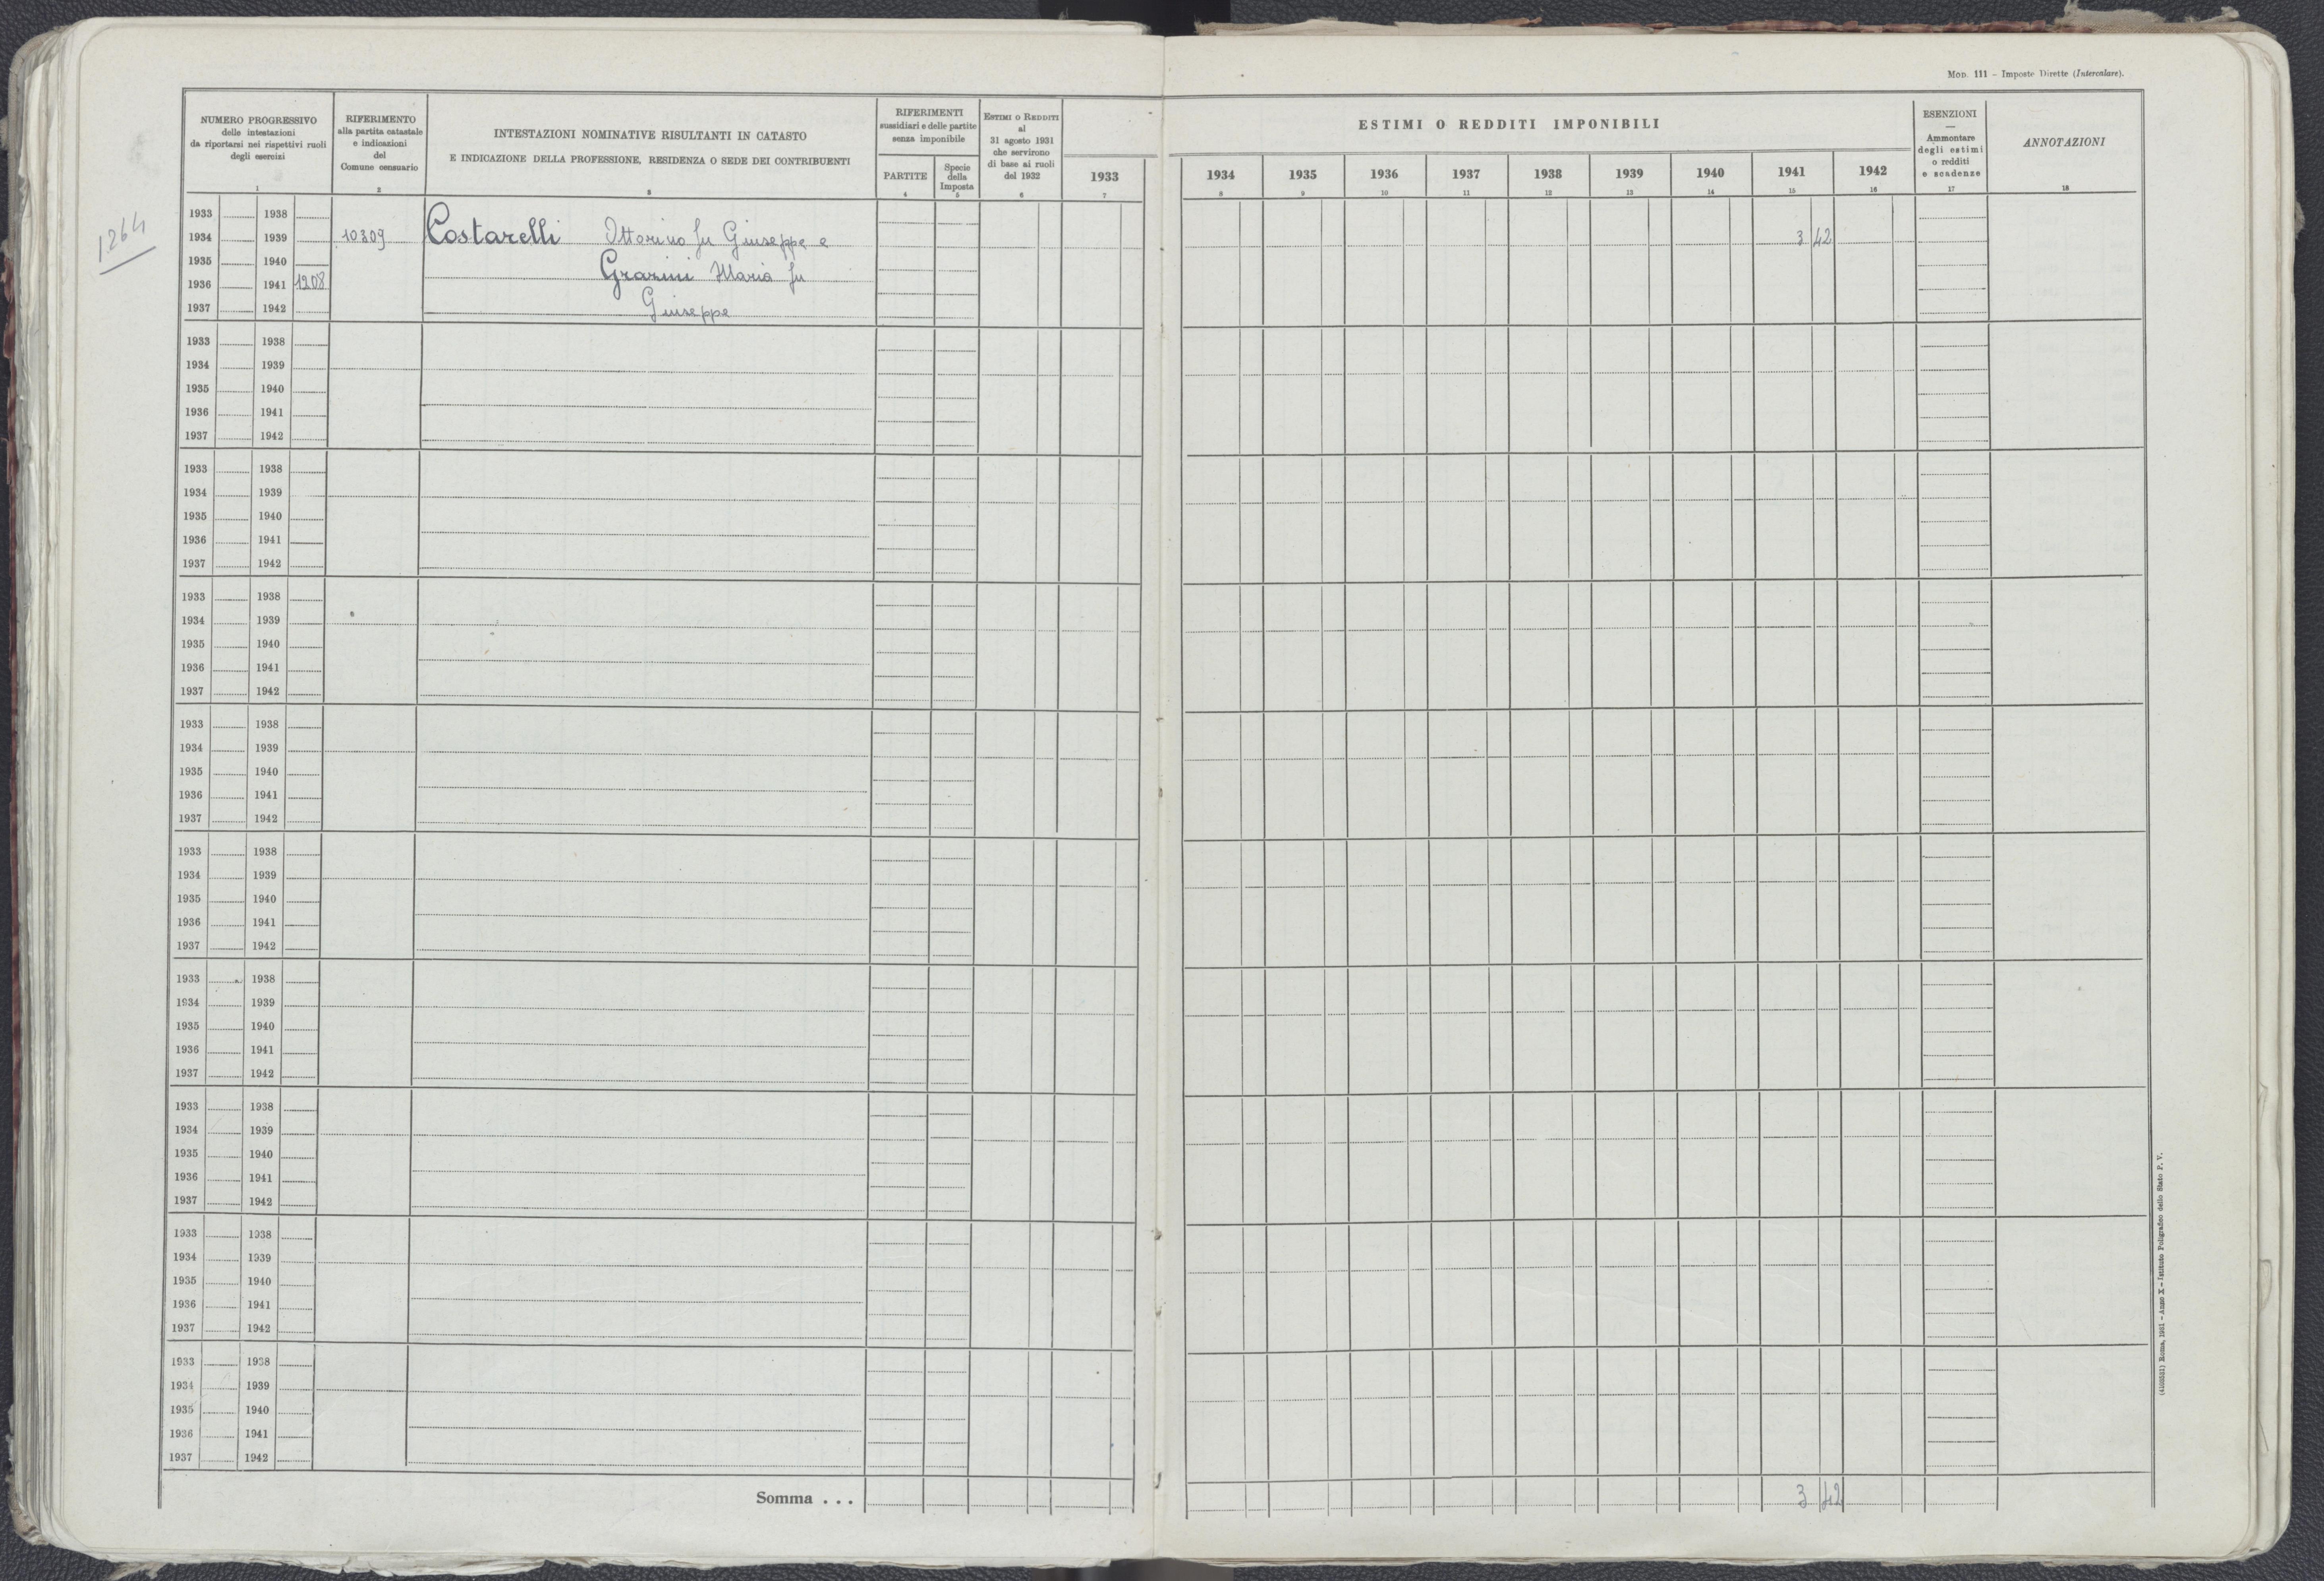 MOD. 111 - Imposte Dirette (Intercalare).
NUMERO PROGRESSIVO
delle intestazioni
da riportarsi nei rispettivi ruoli
degli esercizi
1
RIFERIMENTO
alla partita catastale
e indicazioni
del
Comune censuario
2
INTESTAZIONI NOMINATIVE RISULTANTI IN CATASTO
E INDICAZIONE DELLA PROFESSIONE, RESIDENZA O SEDE DEI CONTRIBUENTI
3
RIFERIMENTI
sussidiari e delle partite
senza imponibile
PARTITE
4
Specie
della
Imposta
5
ESTIMI O REDDITI
al
31 agosto 1931
che servirono
di base ai ruoli
del 1932
6
ESTIMI O REDDITI IMPONIBILI
1933 1934 1935 1936 1937 1938 1939 1940 1941 1942
7 8 9 10 11 12 13 14 15 16
ESENZIONI
—
Ammontare
degli estimi
o redditi
e scadenze
17
ANNOTAZIONI
18
1264
1933 1938
1934 1939 10309 Costarelli Ottorino fu Giuseppe e 3 42
1935 1940
Grazini Maria fu
1936 1941 1208
1937 1942 Giuseppe
1933 1938
1934 1939
1935 1940
1936 1941
1937 1942
1933 1938
1934 1939
1935 1940
1936 1941
1937 1942
1933 1938
1934 1939
1935 1940
1936 1941
1937 1942
1933 1938
1934 1939
1935 1940
1936 1941
1937 1942
1933 1938
1934 1939
1935 1940
1936 1941
1937 1942
1933 1938
1934 1939
1935 1940
1936 1941
1937 1942
1933 1938
1934 1939
1935 1940
1936 1941
1937 1942
1933 1938
1934 1939
1935 1940
1936 1941
1937 1942
1933 1938
1934 1939
1935 1940
1936 1941
1937 1942
Somma . . . 3 42
Roma, 1931 - Anno X - Istituto Poligrafico dello Stato P. V.